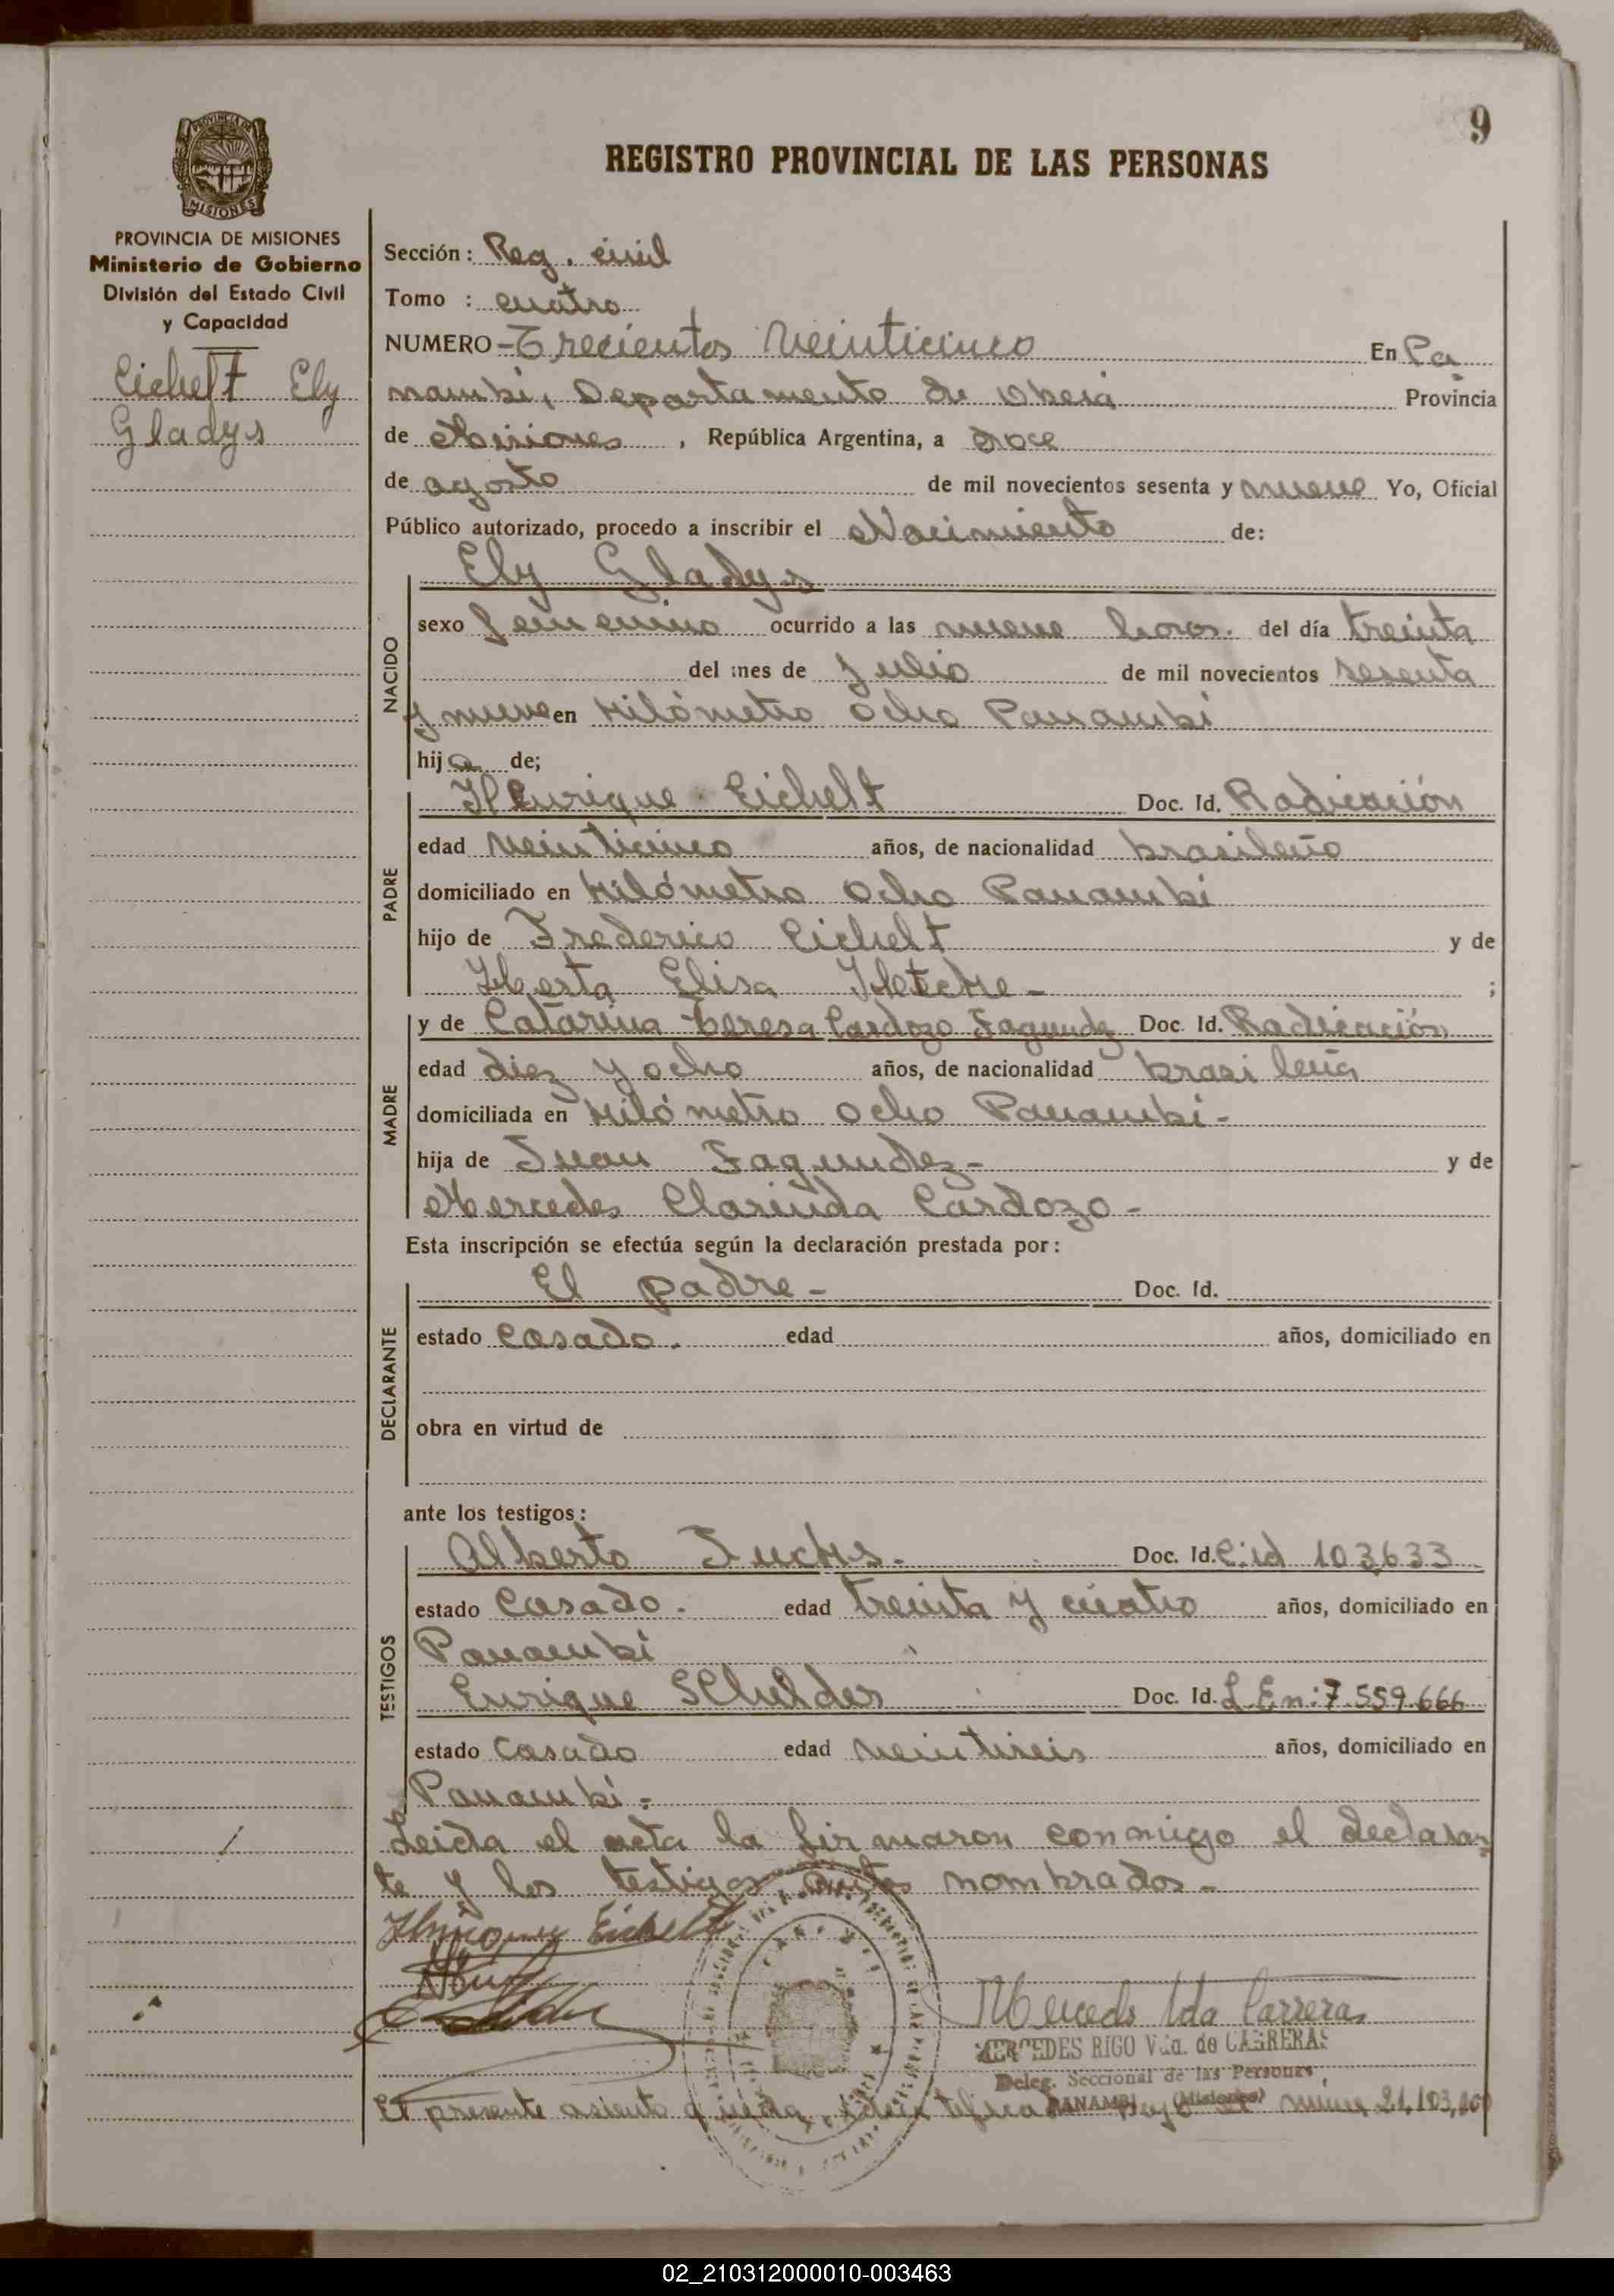 9
REGISTRO PROVINCIAL DE LAS PERSONAS
PROVINCIA DE
MISIONES
PROVINCIA DE MISIONES
Ministerio de Gobierno
División del Estado Civil
y Capacidad
Eichelt Ely
Gladys
Sección: Reg. civil
Tomo : cuatro
NUMERO - Trecientos Veinticinco En Pa
nambí, Departamento de Oberá Provincia
de Misiones, República Argentina, a doce
de agosto de mil novecientos sesenta y nueve Yo, Oficial
Público autorizado, procedo a inscribir el Nacimiento de:
Ely Gladys
NACIDO
sexo femenino ocurrido a las nueve horas. del día treinta
del mes de Julio de mil novecientos sesenta
y nueve en Kilómetro Ocho Panambí
hija de;
Henrique Eichelt Doc. Id. Radicación
PADRE
edad veinticinco años, de nacionalidad brasileño
domiciliado en Kilómetro Ocho Panambí
hijo de Frederico Eichelt y de
Herta Elisa ;
MADRE
y de Catarina Teresa Cardozo Fagundez Doc. Id. Radicación
edad diez y ocho años, de nacionalidad brasileña
domiciliada en Kilómetro ocho Panambí-
hija de Juan Fagundez- y de
Mercedes Clarinda Cardozo-
Esta inscripción se efectúa según la declaración prestada por:
El padre- Doc. Id.
DECLARANTE
estado Casado. edad años, domiciliado en
obra en virtud de
ante los testigos:
TESTIGOS
Alberto Doc. Id. C.id 103,633
estado Casado. edad treinta y cuatro años, domiciliado en
Panambí
Enrique Doc. Id. L.En: 7.559.666
estado casado edad veintiseis años, domiciliado en
Panambí.-
Leida el acta la firmaron conmigo el declaran
te y los testigos antes nombrados-
Eichelt
Mercedes Carreras
MERCEDES RIGO Vda. de CABRERAS
Deleg. Seccional de las Personas
PANAMBI (Misiones)
El presente asiento queda
02_210312000010-003463